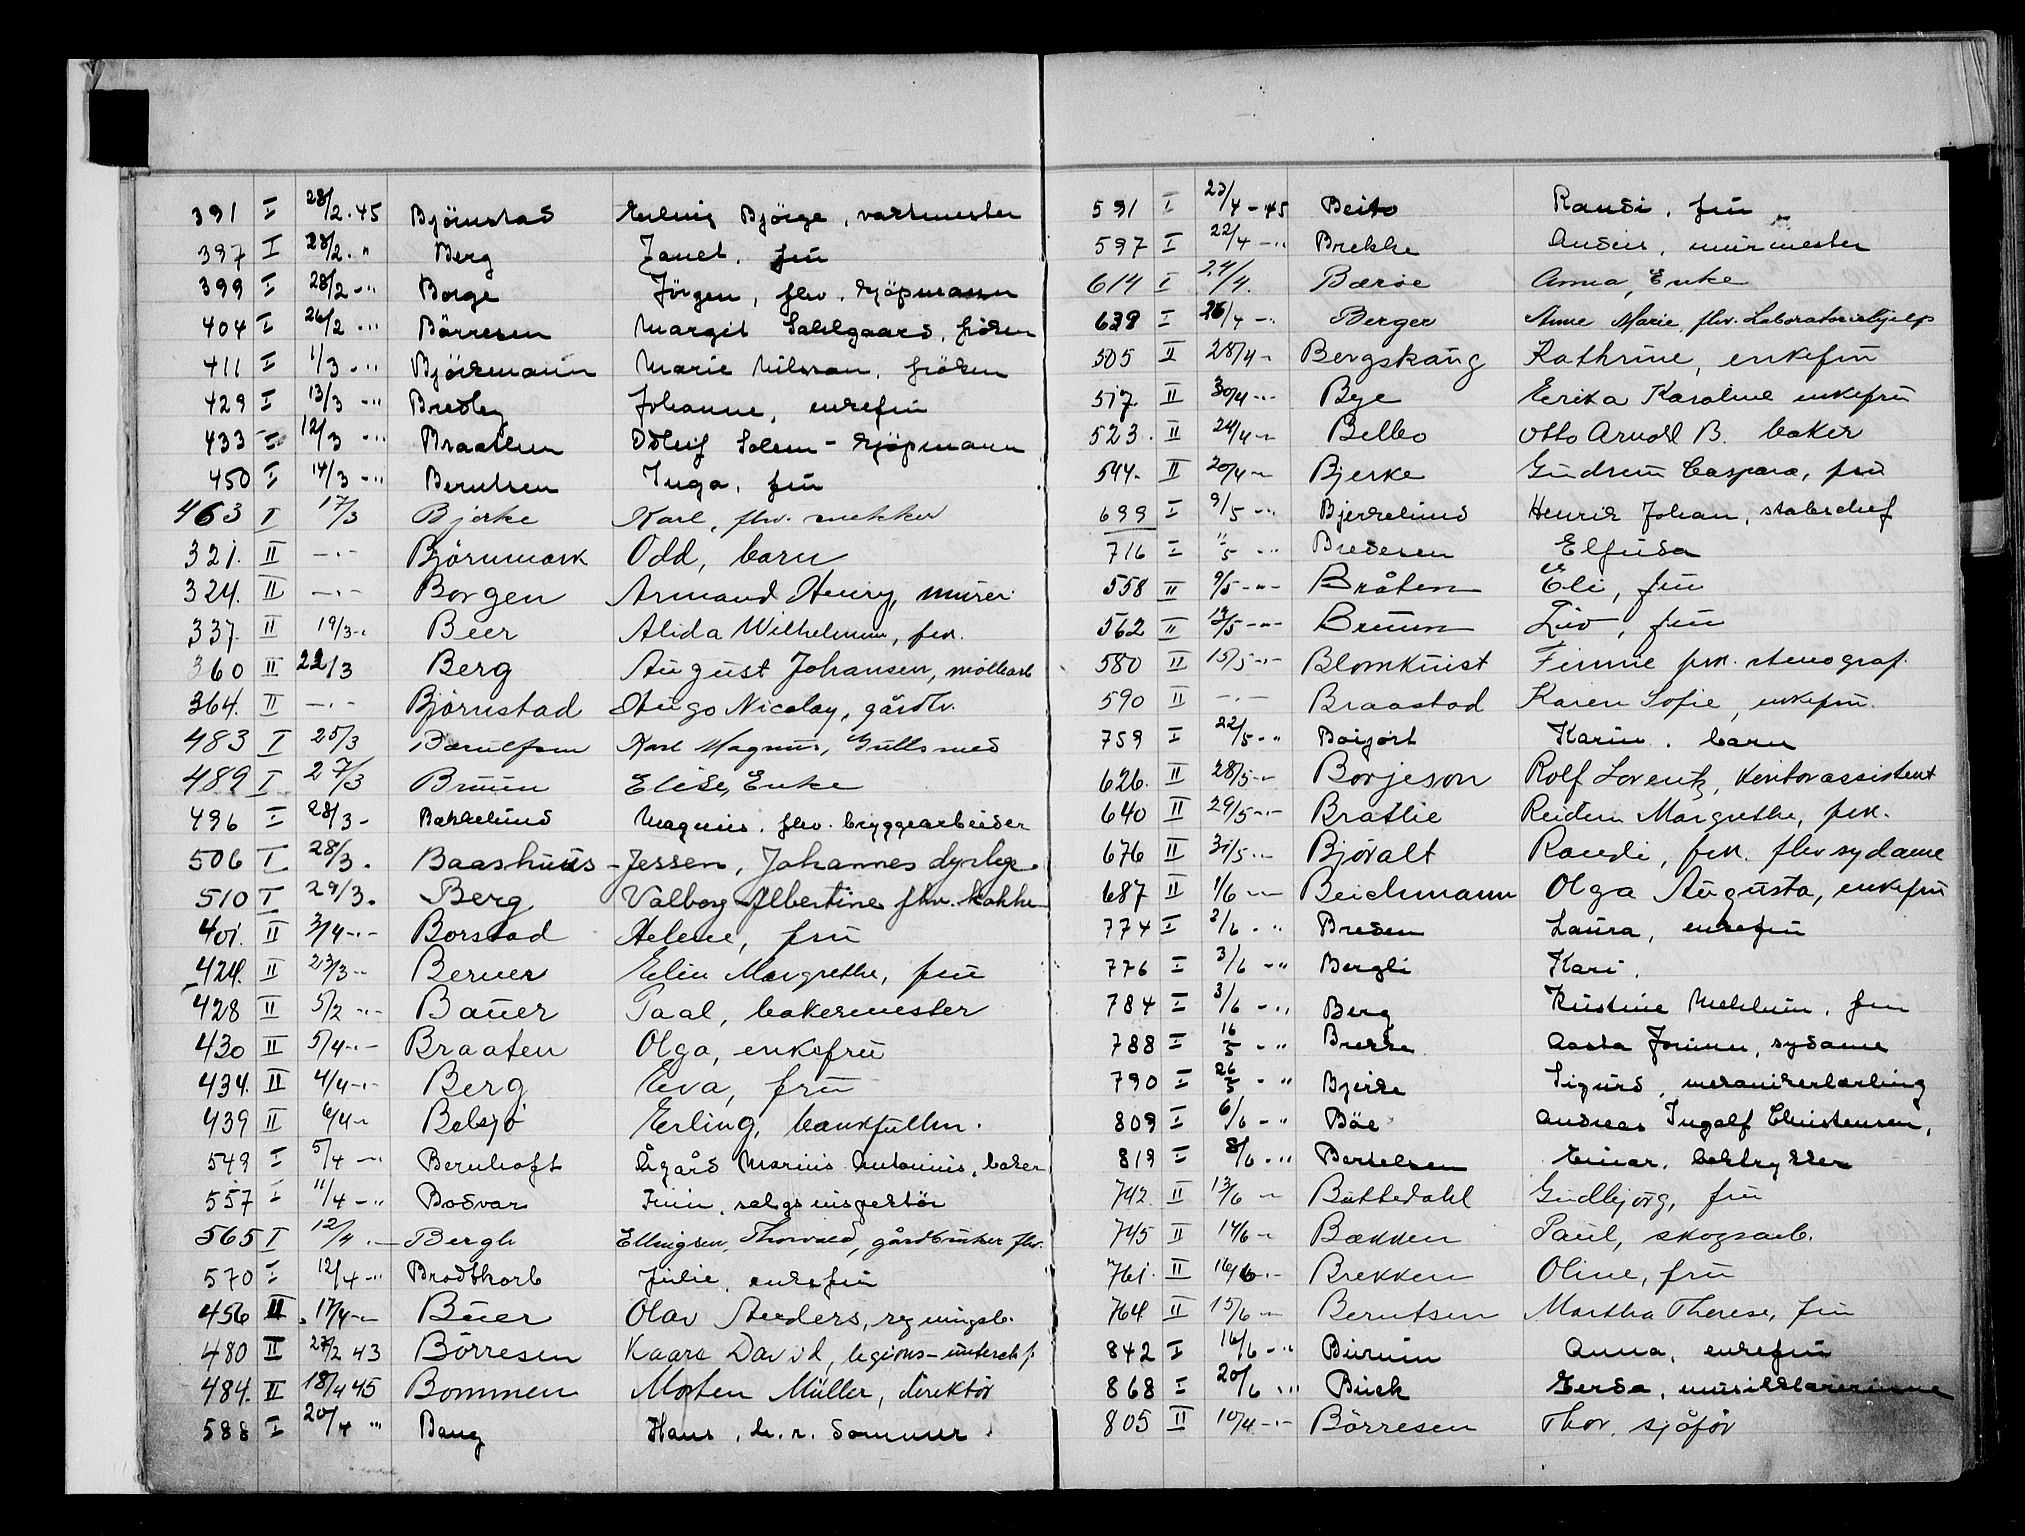 391 I 28/2-45 Björnstad Erling Björge, vaktmester
397 I 28/2. " Berg Zanet, fru
399 I 28/2 - " Borge Jörgen, fhv. kjöpmann
404 I 26/2 - " Börresen Margit Dahlgaard, fröken
411 I 1/3 - " Björkmann Marie Nilsson, fröken
429 I 13/3 - " Bredley Johanne, enkefru
433 I 12/3 - " Braathen Odleif Solem - kjöpmann
450 I 14/3 - " Berntsen Inga, fru
463 I 17/3 Bjerke Karl, fhv. snekker
321. II - " - Björnmark Odd, barn
324. II - " - Borgen Armand Henry, murer
337. II 19/3 - " Beer Alida Wilhelmine, frk.
360 II 22/3 Berg August Johansen, möllearb
364. II - " - Bjørnstad Hugo Nicolay, gårdbr.
483 I 25/3 Karl Magnus, Gullsmed
489 I 27/3 Bruun Elise, Enke
496 I 28/3 - Bakkelund Magnus, fhv. bryggearbeider
506 I 28/3. Baashuus-Jessen, Johannes dyrlege
510 I 29/3. Berg Valborg Albertine fhv. kokke
401. II 3/4 - " - Borstad Helene, fru
424. II 23/3 - " Berner Elin Margrethe, fru
428 II 5/2 " - Bauer Paal, bakermester
430 II 5/4 - " - Braaten Olga, enkefru
434. II 4/4 - " - Berg Eva, fru
439 II 6/4 - " Belsjö Erling, bankfullm.
549 I 5/4 - " Bernhoft Ågård Marius Antonius, baker
557 I 11/4 - " Bodvar Finn, salgsinspektör
565 I 12/4 . - Bergh Ellingsen, Thorvald, gårdbruker fhv.
570 I 12/4 - " Brodtkorb Julie, enkefru
456 II 17/4 - " Buer Olav Anders, rydningsb.
480 II 27/2 43 Börresen Kaare David, legions-untersch.f.
484. II 18/4 45 Bommen Morten Müller, direktör
588 I 20/4 " Bang Hans, h.r. Dommer
591 I 23/4 - 45 Beito Randi, fru
597 I 22/4 - " Brekke Anders, murmester
614 I 24/4. Bærøe Anna, Enke
639 I 26/4 - " Berger Anne Marie, fhv. Laboratoriehjelp
505 II 28/4 - Bergskaug Kathrine, enkefru
517. II 30/4 - " Bye Erika Karoline enkefru
523. II 24/4 - " Belbo Otto Arnold B. baker
544. II 20/4 - " Bjerke Gudrun Caspara, fru
699 I 9/5 - " Bjerkelund Henrik Johan, stabschef
716 I 11/5 - " Bredesen Elfrida
558 II 9/5 - " - Bråten Eli, fru
562 II 13/5 - " - Bruun Liv, fru
580 II 15/5 - " - Blomkuist Finnie frk. stenograf.
590 II - " - Braastad Karen Sofie, enkefru.
759 I 22/5 - " Boijort Karin, barn
626. II 28/5 - " Borjeson Rolf Lorentz, kontorassistent
640 II 29/5 - " - Bratlie Reidun Margrethe, frk.
676 II 31/5 - " Bjøralt Randi, frk. fhv sydame
687 II 1/6 - " - Beichmann Olga Augusta, enkefru
774 I 2/6 - " Breden Laura, enkefru
776 I 3/6 - " Bergli Kari.
784 I 3/6 - " Berg Kristine Mehlum, fru
788 I 16/5 - " Brekke Aasta Jorunn, sydame
790 I 26/5 - " Bjerke Sigurd, mekanikerlærling
809 I 6/6 - " Böe Andreas Ingolf Christensen,
819 I 8/6 - " Bertelsen Einar, boktrykker
742. II 13/6 - " Buttedahl Gudbjörg, fru
745 II 14/6 - " Bakken Paul, skogsarb.
761. II 16/6 - " Brekken Oline, fru
764 II 15/6 - " Berntsen Martha Therese, fru
842 I 16/6 - " Burum Anna, enkefru
868 I 20/6 " Buck Gerda, musikklærerinne
805 II 10/4 - " - Börresen Thor, sjåför